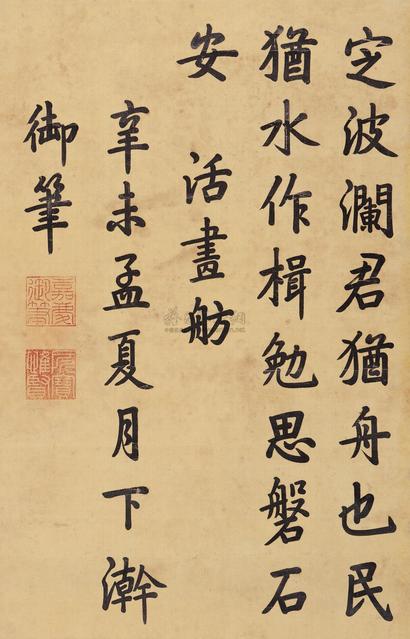 定波瀾君猶舟也民
猶水作楫勉思磐石
安　活畫舫
辛未孟夏月下澣
御筆
嘉慶御筆